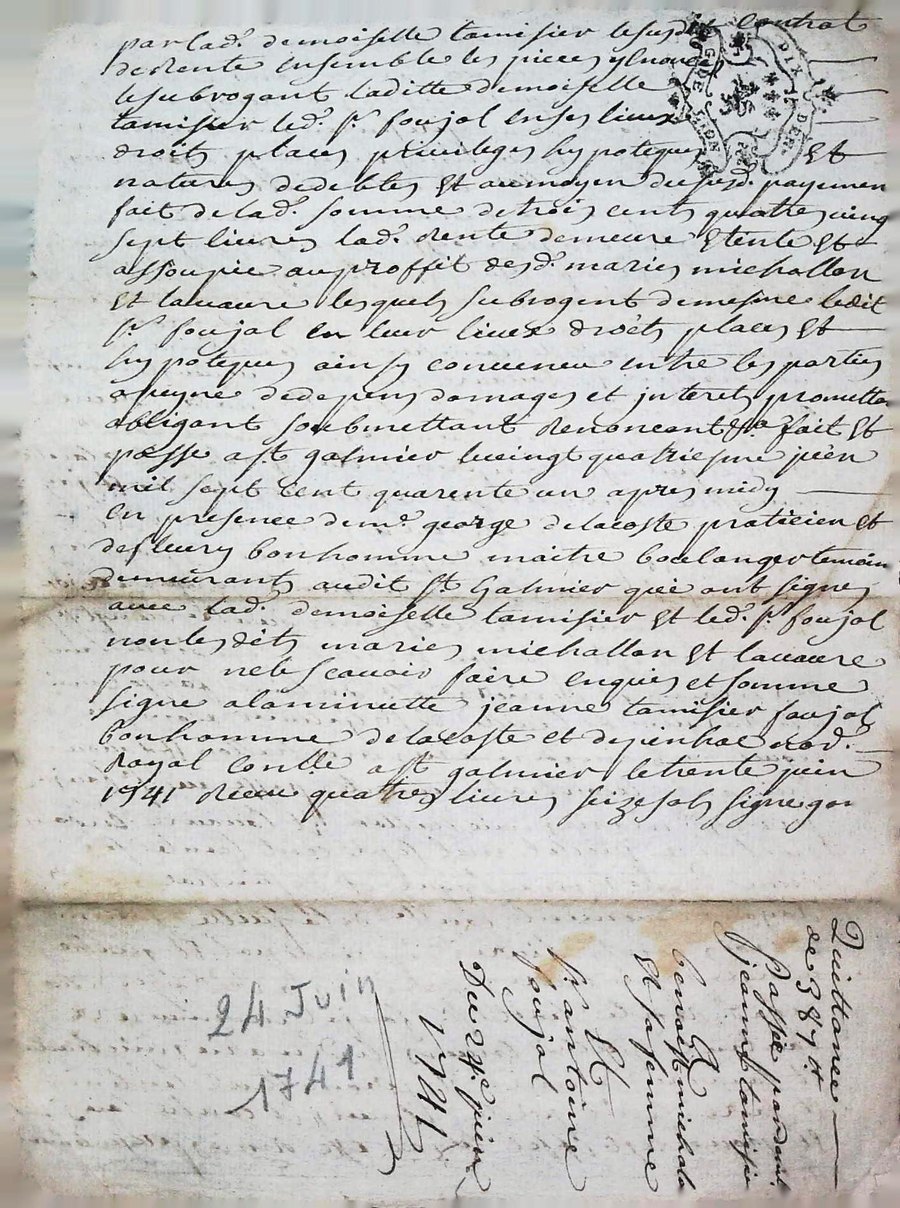 par lad.e demoiselle tamisier lesusdit contrat
de Rente ensemble les pieces y
lesubrogant laditte demoiselle
tamisier led.t s.r foujol en ses lieux
droits places privileges hypoteques Et
natures dedebtes Et aumoyen dususd. payemen
fait de lad.e somme de trois cents quatre vingt
sept livres lad.e Rente demeure Eteinte Et
assoupie auproffit desd. maries michallon
Et lavaure lesquels subrogent demesme ledit
s.r foujol en leur lieux droits places Et
hypoteques ainsy convenu entre les parties
apeyne dedepens domages et interets prometta
obligant soubmettant Renoncant fait Et
passe a st galmier levingt quatriesme juin
mil sept cent quarente un apres midy
en presence dem.e george delacoste praticien et
defleury bonhomme maitre boulanger temoin
demeurants audit st Galmier qui ont signes
avec lad.e demoiselle tamisier Et led.t s.r foujol
non lesdits maries michallon Et lavaure
pour nelescavoir faire enquis et somme
signe alaminutte jeanne tamisier foujol
bonhomme delacoste et depinhac
Royal Con.lle a st galmier letrente juin
1741 Receu quatres livres seizesols signe
GDE LION
DIX DEN.
Quittance
de 387 lt
Passée par
jeanne tamisie
A
benoist michalo
Et sa femme
Et
s.r antoine
foujol
Du 24.e juin
1741
24 Juin
1741